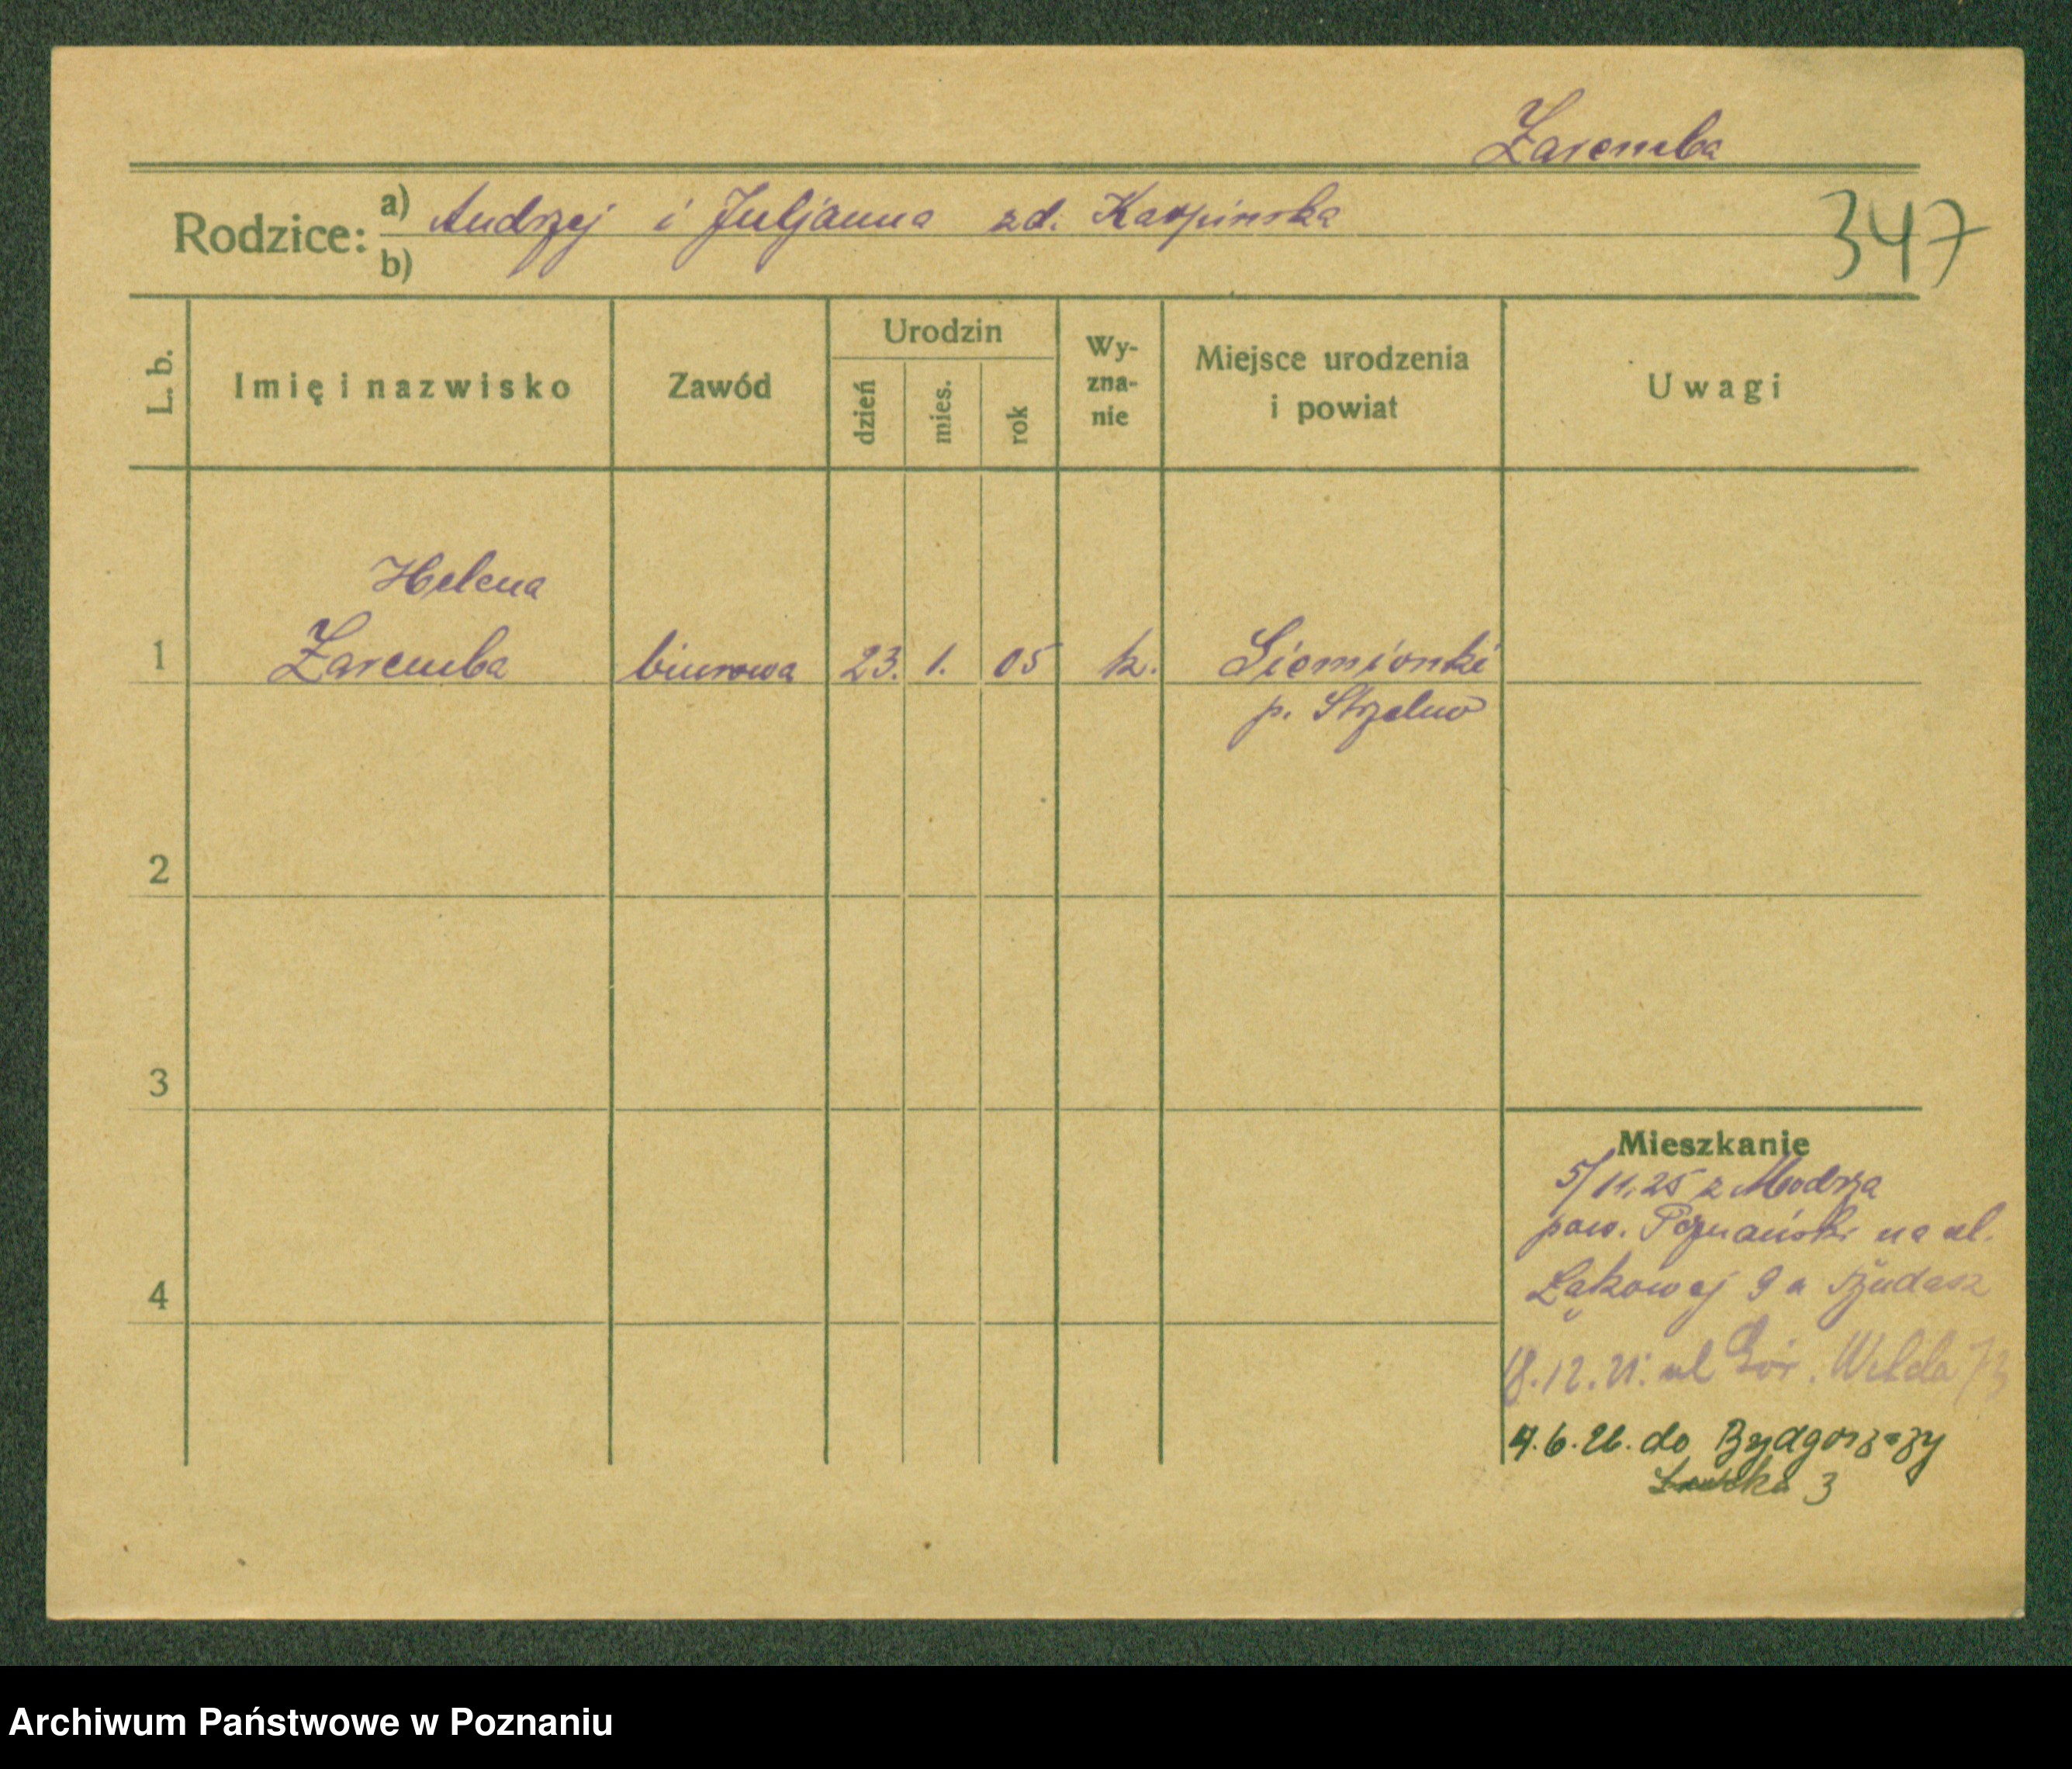 Zaremba
347
Rodzice: a) Andrzej i Juljanna zd. Karpinska
b)
L. b.
Imię i nazwisko
Zawód
Urodzin
dzień
mies.
rok
Wy-
zna-
nie
Miejsce urodzenia
i powiat
Uwagi
Helena
1 Zaremba biurowa 23. 1. 05 k. Siemionki
p. Strzelno
2
3
4
Mieszkanie
5/11.25 z Modrza
pow. Poznański na ul.
Łąkowej 9 a
18.12. ul Gór. Wilda 73
4.6.26. do Bydgoszczy
3
Archiwum Państwowe w Poznaniu